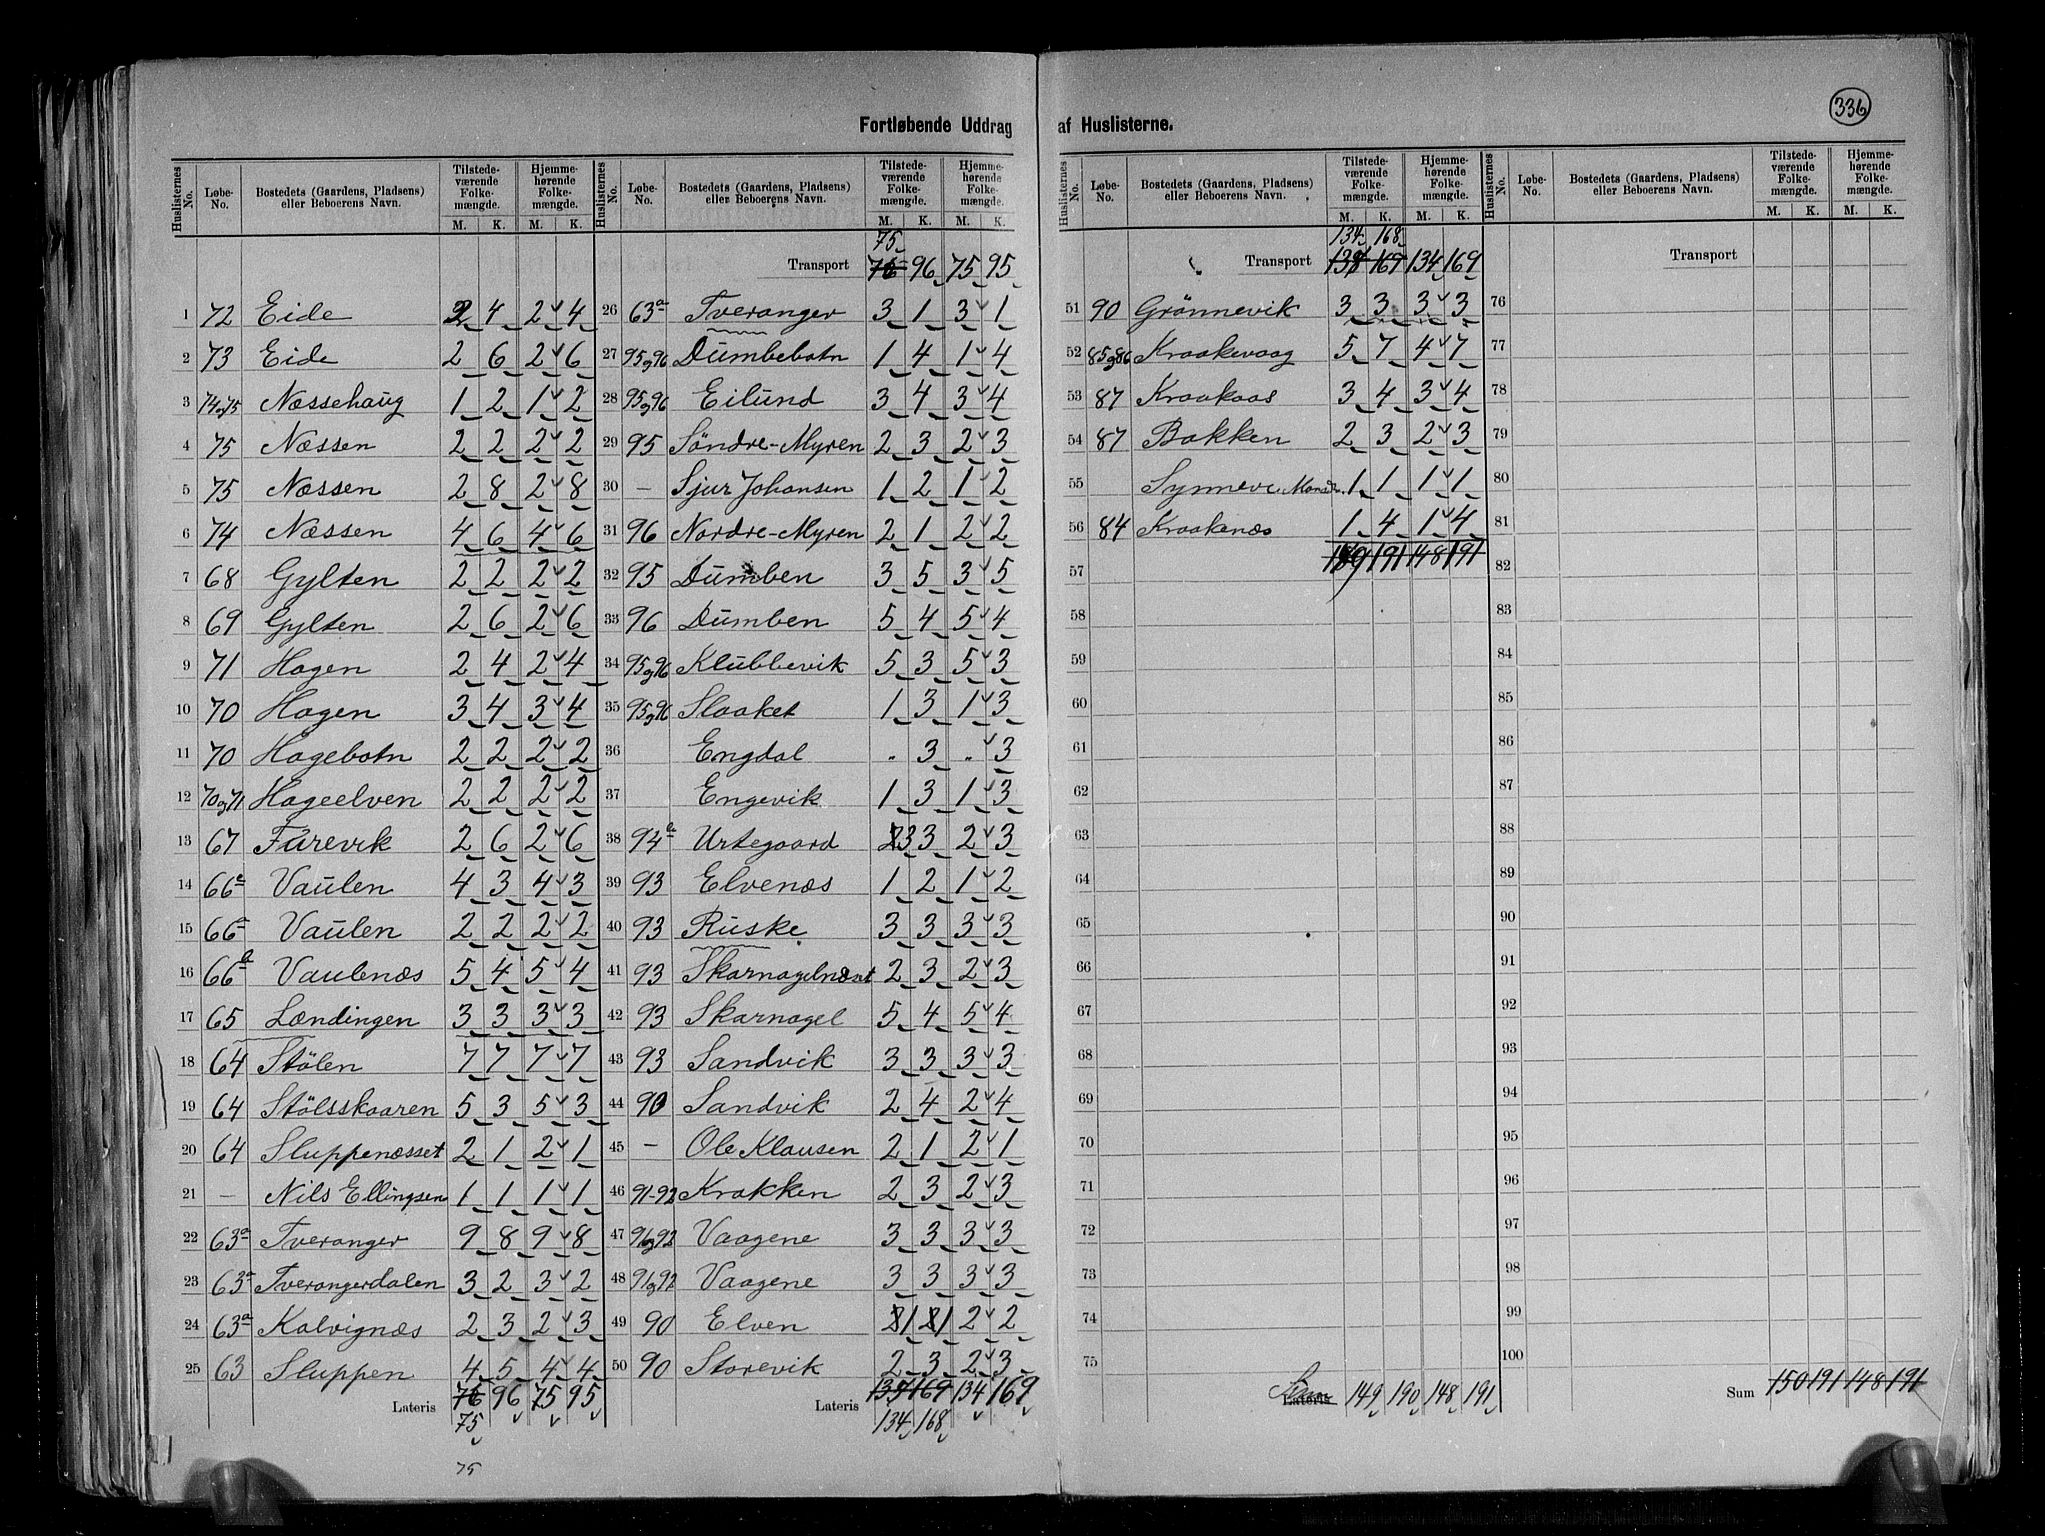 336
Fortløbende Uddrag af Huslisterne.
Huslisternes No. Løbe-No. Bostedets (Gaardens, Pladsens) eller Beboerens Navn. Tilstedeværende Folkemængde. M. K. Hjemmehørende Folkemængde. M. K.
1 72 Eide 2 4 2 4
2 73 Eide 2 6 2 6
3 74og75 Næssehaug 1 2 1 2
4 75 Næssen 2 2 2 2
5 75 Næssen 2 8 2 8
6 74 Næssen 4 6 4 6
7 68 Gylten 2 2 2 2
8 69 Gylten 2 6 2 6
9 71 Hagen 2 4 2 4
10 70 Hagen 3 4 3 4
11 70 Hagebotn 2 2 2 2
12 70og71 Hageelven 2 2 2 2
13 67 Furevik 2 6 2 6
14 66 Vaulen 4 3 4 3
15 66a Vaulen 2 2 2 2
16 66 Vaulenæs 5 4 5 4
17 65 Lændingen 3 3 3 3
18 64 Stölen 7 7 7 7
19 64 Stölsskaaren 5 3 5 3
20 64 Sluppenæsset 2 1 2 1
21 — Nils Ellingsen 1 1 1 1
22 63a Tveranger 9 8 9 8
23 63a Tverangerdalen 3 2 3 2
24 63a Kalvignæs 2 3 2 3
25 63 Sluppen 4 5 4 4
Lateris 76 96 75 95
75
75
Huslisternes No. Løbe-No. Bostedets (Gaardens, Pladsens) eller Beboerens Navn. Tilstedeværende Folkemængde. M. K. Hjemmehørende Folkemængde. M. K.
75
Transport 76 96 75 95
26 63a Tveranger 3 1 3 1
27 95og96 Dumbebotn 1 4 1 4
28 95og96 Eilund 3 4 3 4
29 95 Söndre-Myren 2 3 2 3
30 — Sjur Johansen 1 2 1 2
31 96 Nordre-Myren 2 1 2 2
32 95 Dumben 3 5 3 5
33 96 Dumben 5 4 5 4
34 95og96 Klubbevik 5 3 5 3
35 95og96 Slaaket 1 3 1 3
36 Engdal . 3 . 3
37 Engevik 1 3 1 3
38 94a Urtegaard 23 3 2 3
39 93 Elvenæs 1 2 1 2
40 93 Ruske 3 3 3 3
41 93 Skarnagelnæset 2 3 2 3
42 93 Skarnagel 5 4 5 4
43 93 Sandvik 3 3 3 3
44 90 Sandvik 2 4 2 4
45 — Ole Klausen 2 1 2 1
46 91-92 Krakken 2 3 2 3
47 96og92 Vaagene 3 3 3 3
48 91og92 Vaagene 3 3 3 3
49 90 Elven 21 21 2 2
50 90 Storevik 2 3 2 3
Lateris 137 169 134 169
134 168
Huslisternes No. Løbe-No. Bostedets (Gaardens, Pladsens) eller Beboerens Navn. Tilstedeværende Folkemængde. M. K. Hjemmehørende Folkemængde. M. K.
134 168
Transport 137 169 134 169
51 90 Grønnevik 3 3 3 3
52 85og86 Kraakevaag 5 7 4 7
53 87 Kraakaas 3 4 3 4
54 87 Bakken 2 3 2 3
55 Synneve Monsdr. 1 1 1 1
56 84 Kraakenæs 1 4 1 4
57 149 191 148 191
58
59
60
61
62
63
64
65
66
67
68
69
70
71
72
73
74
75
Sum Lateris 149 190 148 191
Huslisternes No. Løbe-No. Bostedets (Gaardens, Pladsens) eller Beboerens Navn. Tilstedeværende Folkemængde. M. K. Hjemmehørende Folkemængde. M. K.
Transport
76
77
78
79
80
81
82
83
84
85
86
87
88
89
90
91
92
93
94
95
96
97
98
99
100
Sum 150 191 148 191